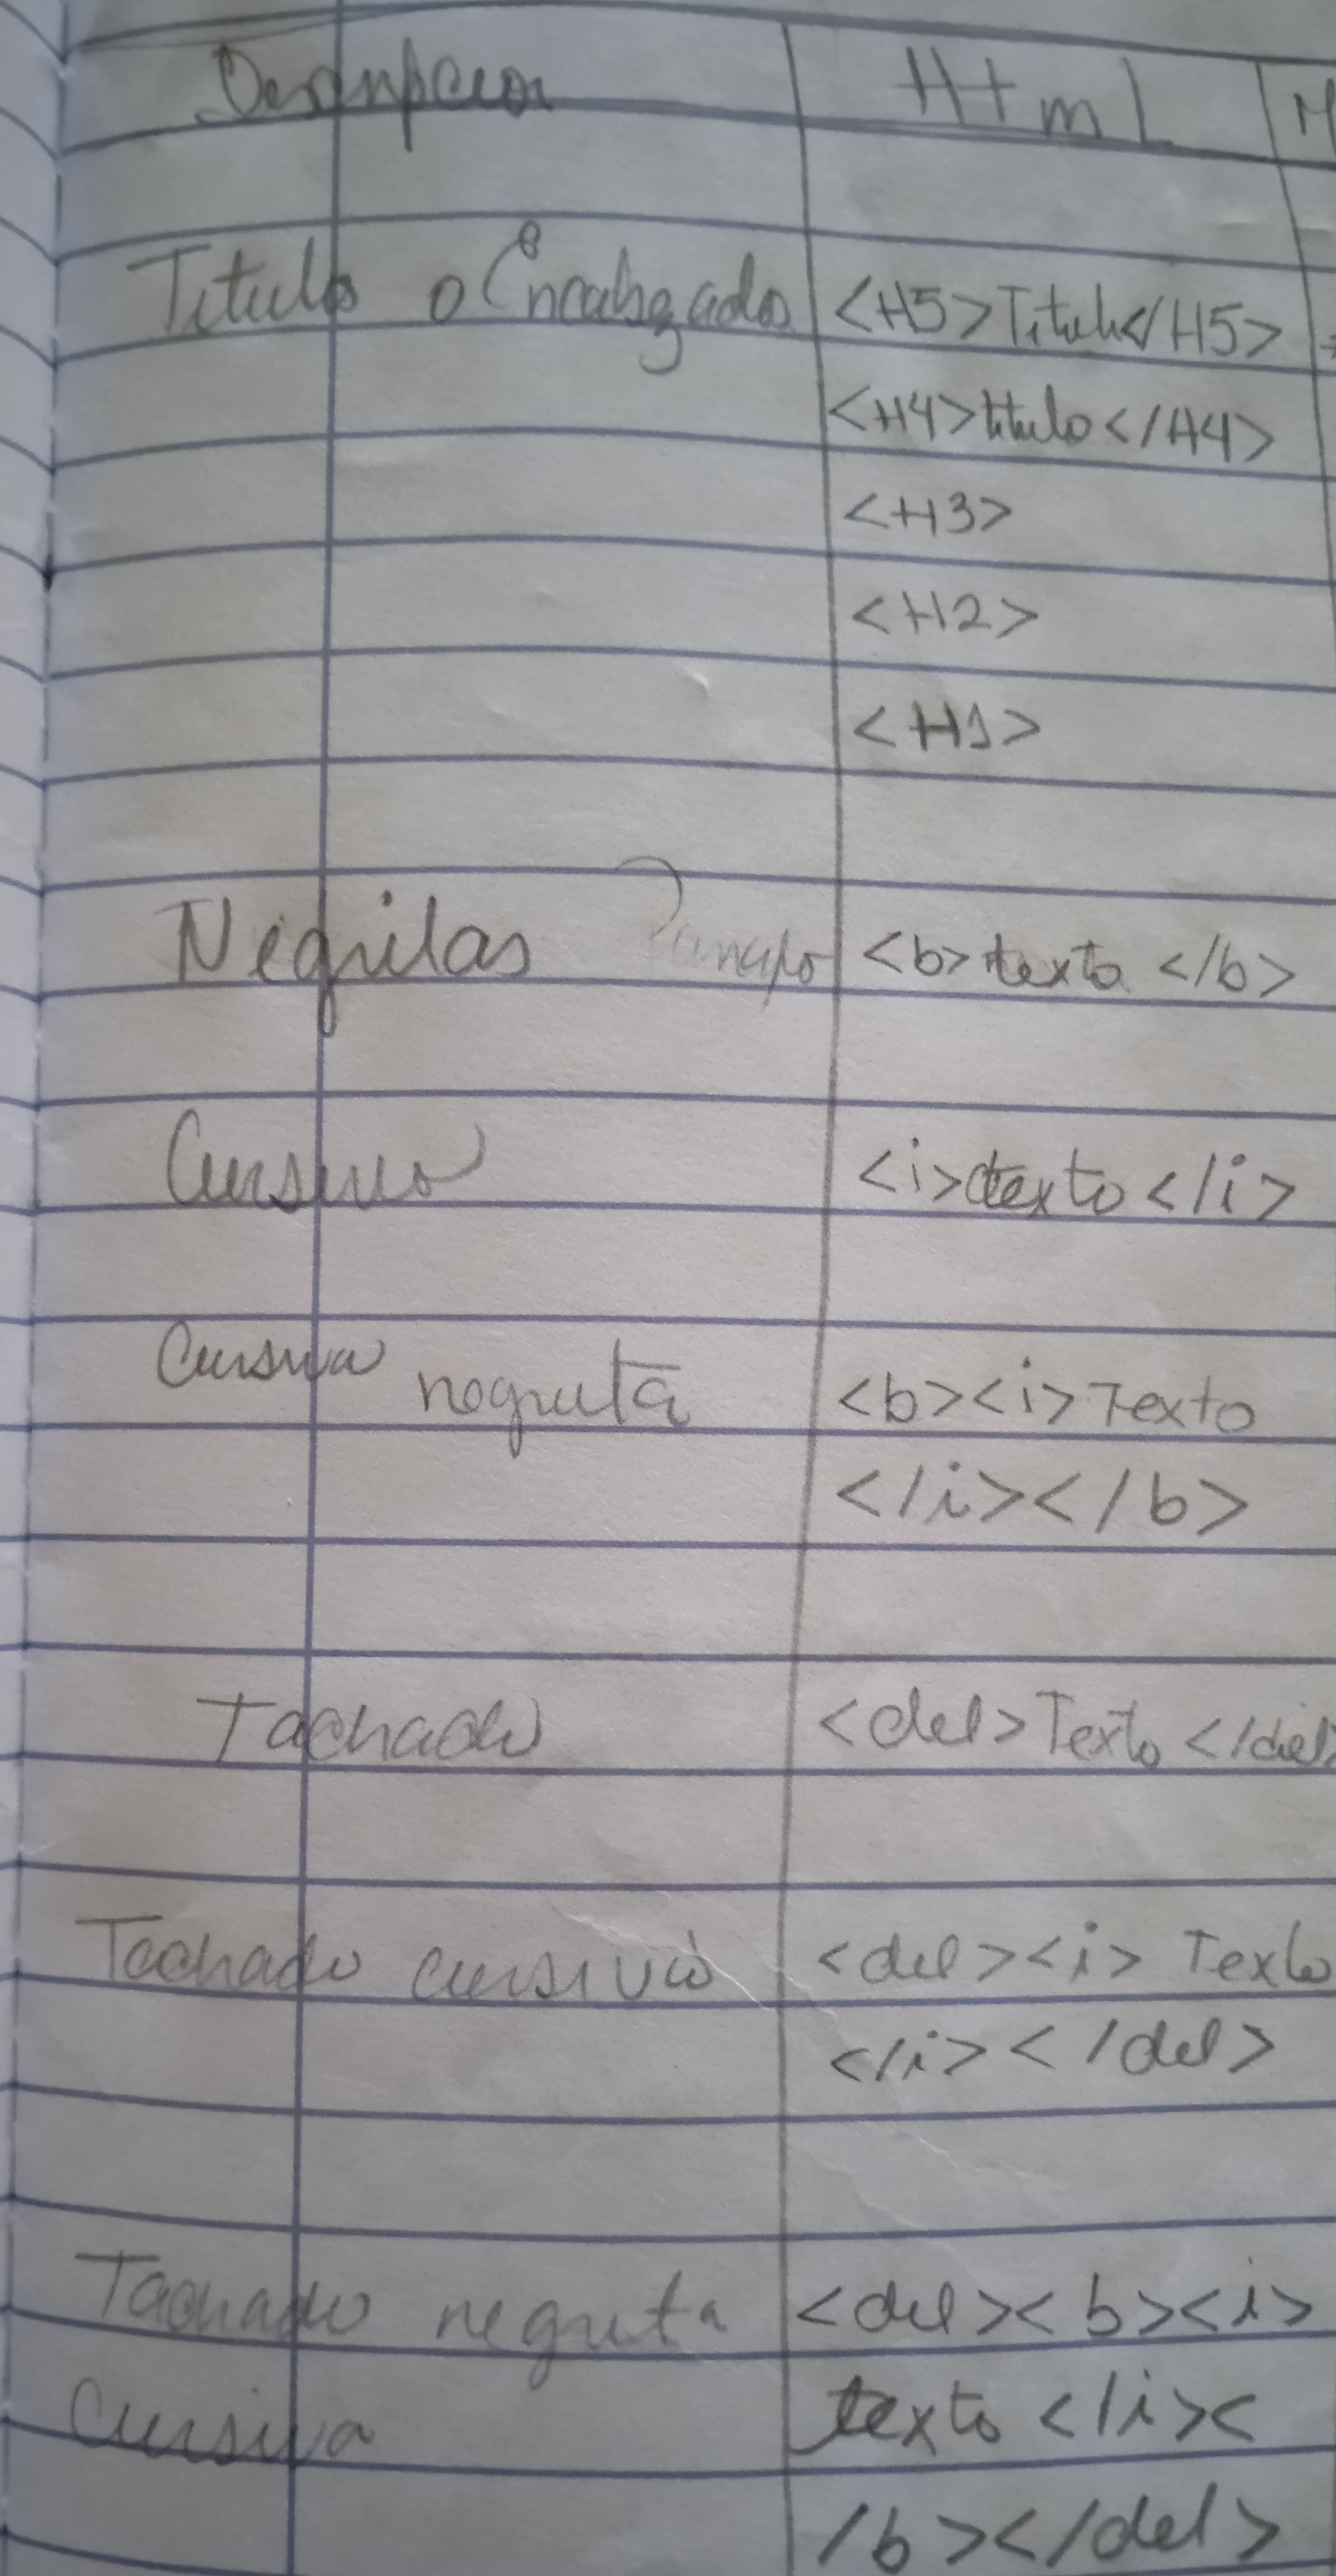 Descripcion Html M
Titulo o Encabezados <H5>Titulo</H5>
<H4>titulo</H4>
<H3>
<H2>
<H1>
Negrilas <b>texto </b>
Cursivo <i>texto</i>
Cursiva negrita <b><i>Texto
</i></b>
Tachado <del>Texto </del>
Tachado cursivo <del><i> Texto
</i></del>
Tachado negrita <del><b><i>
cursiva texto </i><
/b></del>